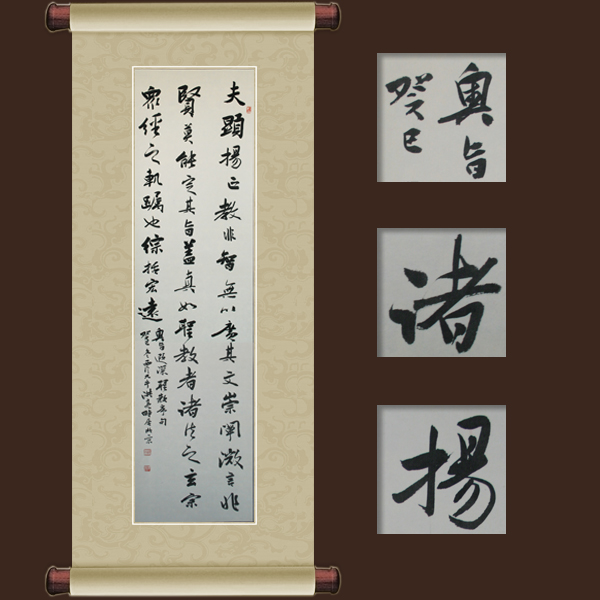 夫顯揚正教非智無以廣其文崇闡微言非
賢莫能定其旨蓋真如聖教者诸法之玄宗
眾經之軌躅也綜括宏遠
奧旨遐深聖教序句
癸巳冬
奧旨
癸巳
诸
揚